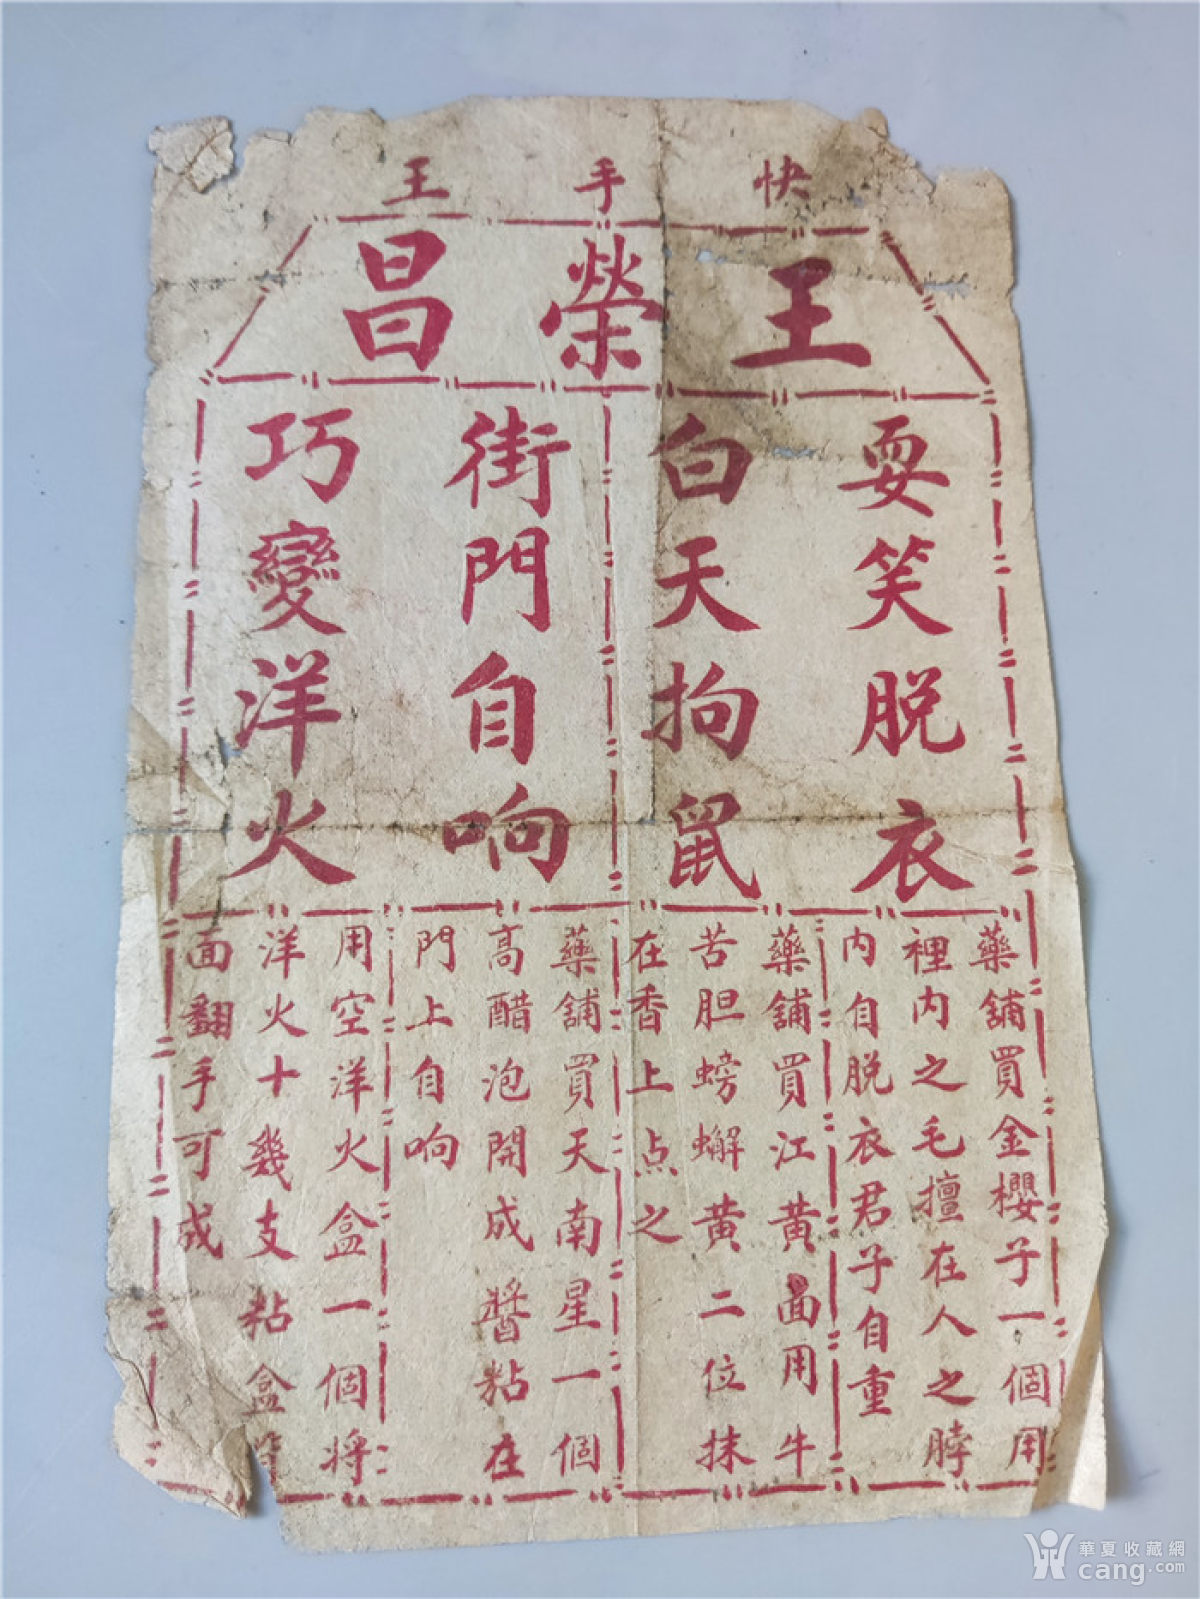 快手王
王榮昌
耍笑脱衣
白天拘鼠
街門自响
巧變洋火
藥舖買金櫻子一個用
裡内之毛擅在人之脖
内自脱衣君子自重
藥舖買江黄面用牛
苦胆螃蠏黄二位抹
在香上点之
藥舖買天南星一個
高醋泡開成醬粘在
門上自响
用空洋火盒一個将
洋火十幾支粘盒
面翻手可成
華夏收藏網
cang.com